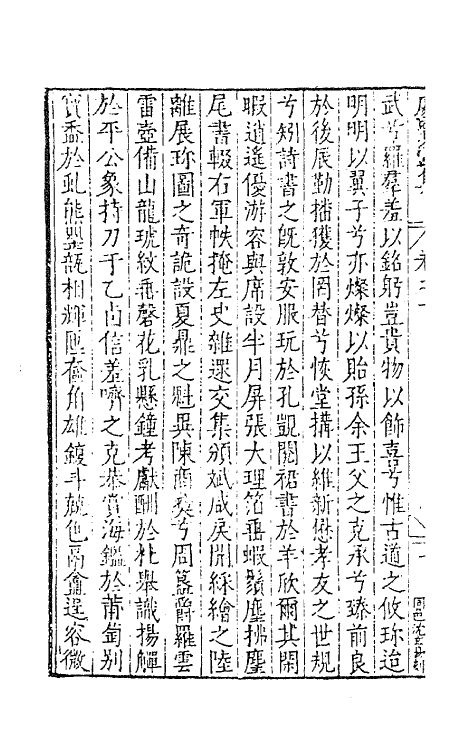 武兮羅羣羞以銘躬豈貴物以飾喜兮惟古道之攸珎迨
明明以翼子兮亦燦燦以貽孫余王父之克承兮臻前良
於後辰勤播獲於罔替兮恢堂搆以維新懋孝友之世規
兮矧詩書之旣敦安服玩於孔覬闕裙書於羊欣爾其閑
暇逍遙優游容與席設半月屏張大理箔垂蝦鬚麈拂麈
尾書輟右軍帙掩左史雜遝交集頒斌咸戾開綵繪之陸
離展珎圖之奇詭設夏鼎之魁異陳商彜兮周簋爵羅雲
雷壺備山龍琥紋垂磬花乳懸鐘考獻酬於杜舉識揚觶
於平公象持刀于乙卣信羞嚌之克恭賞海鑑於莆萄别
寳盉於虬熊罍瓿相輝匜奩角雄鍑斗兢色鬲龠逞容微